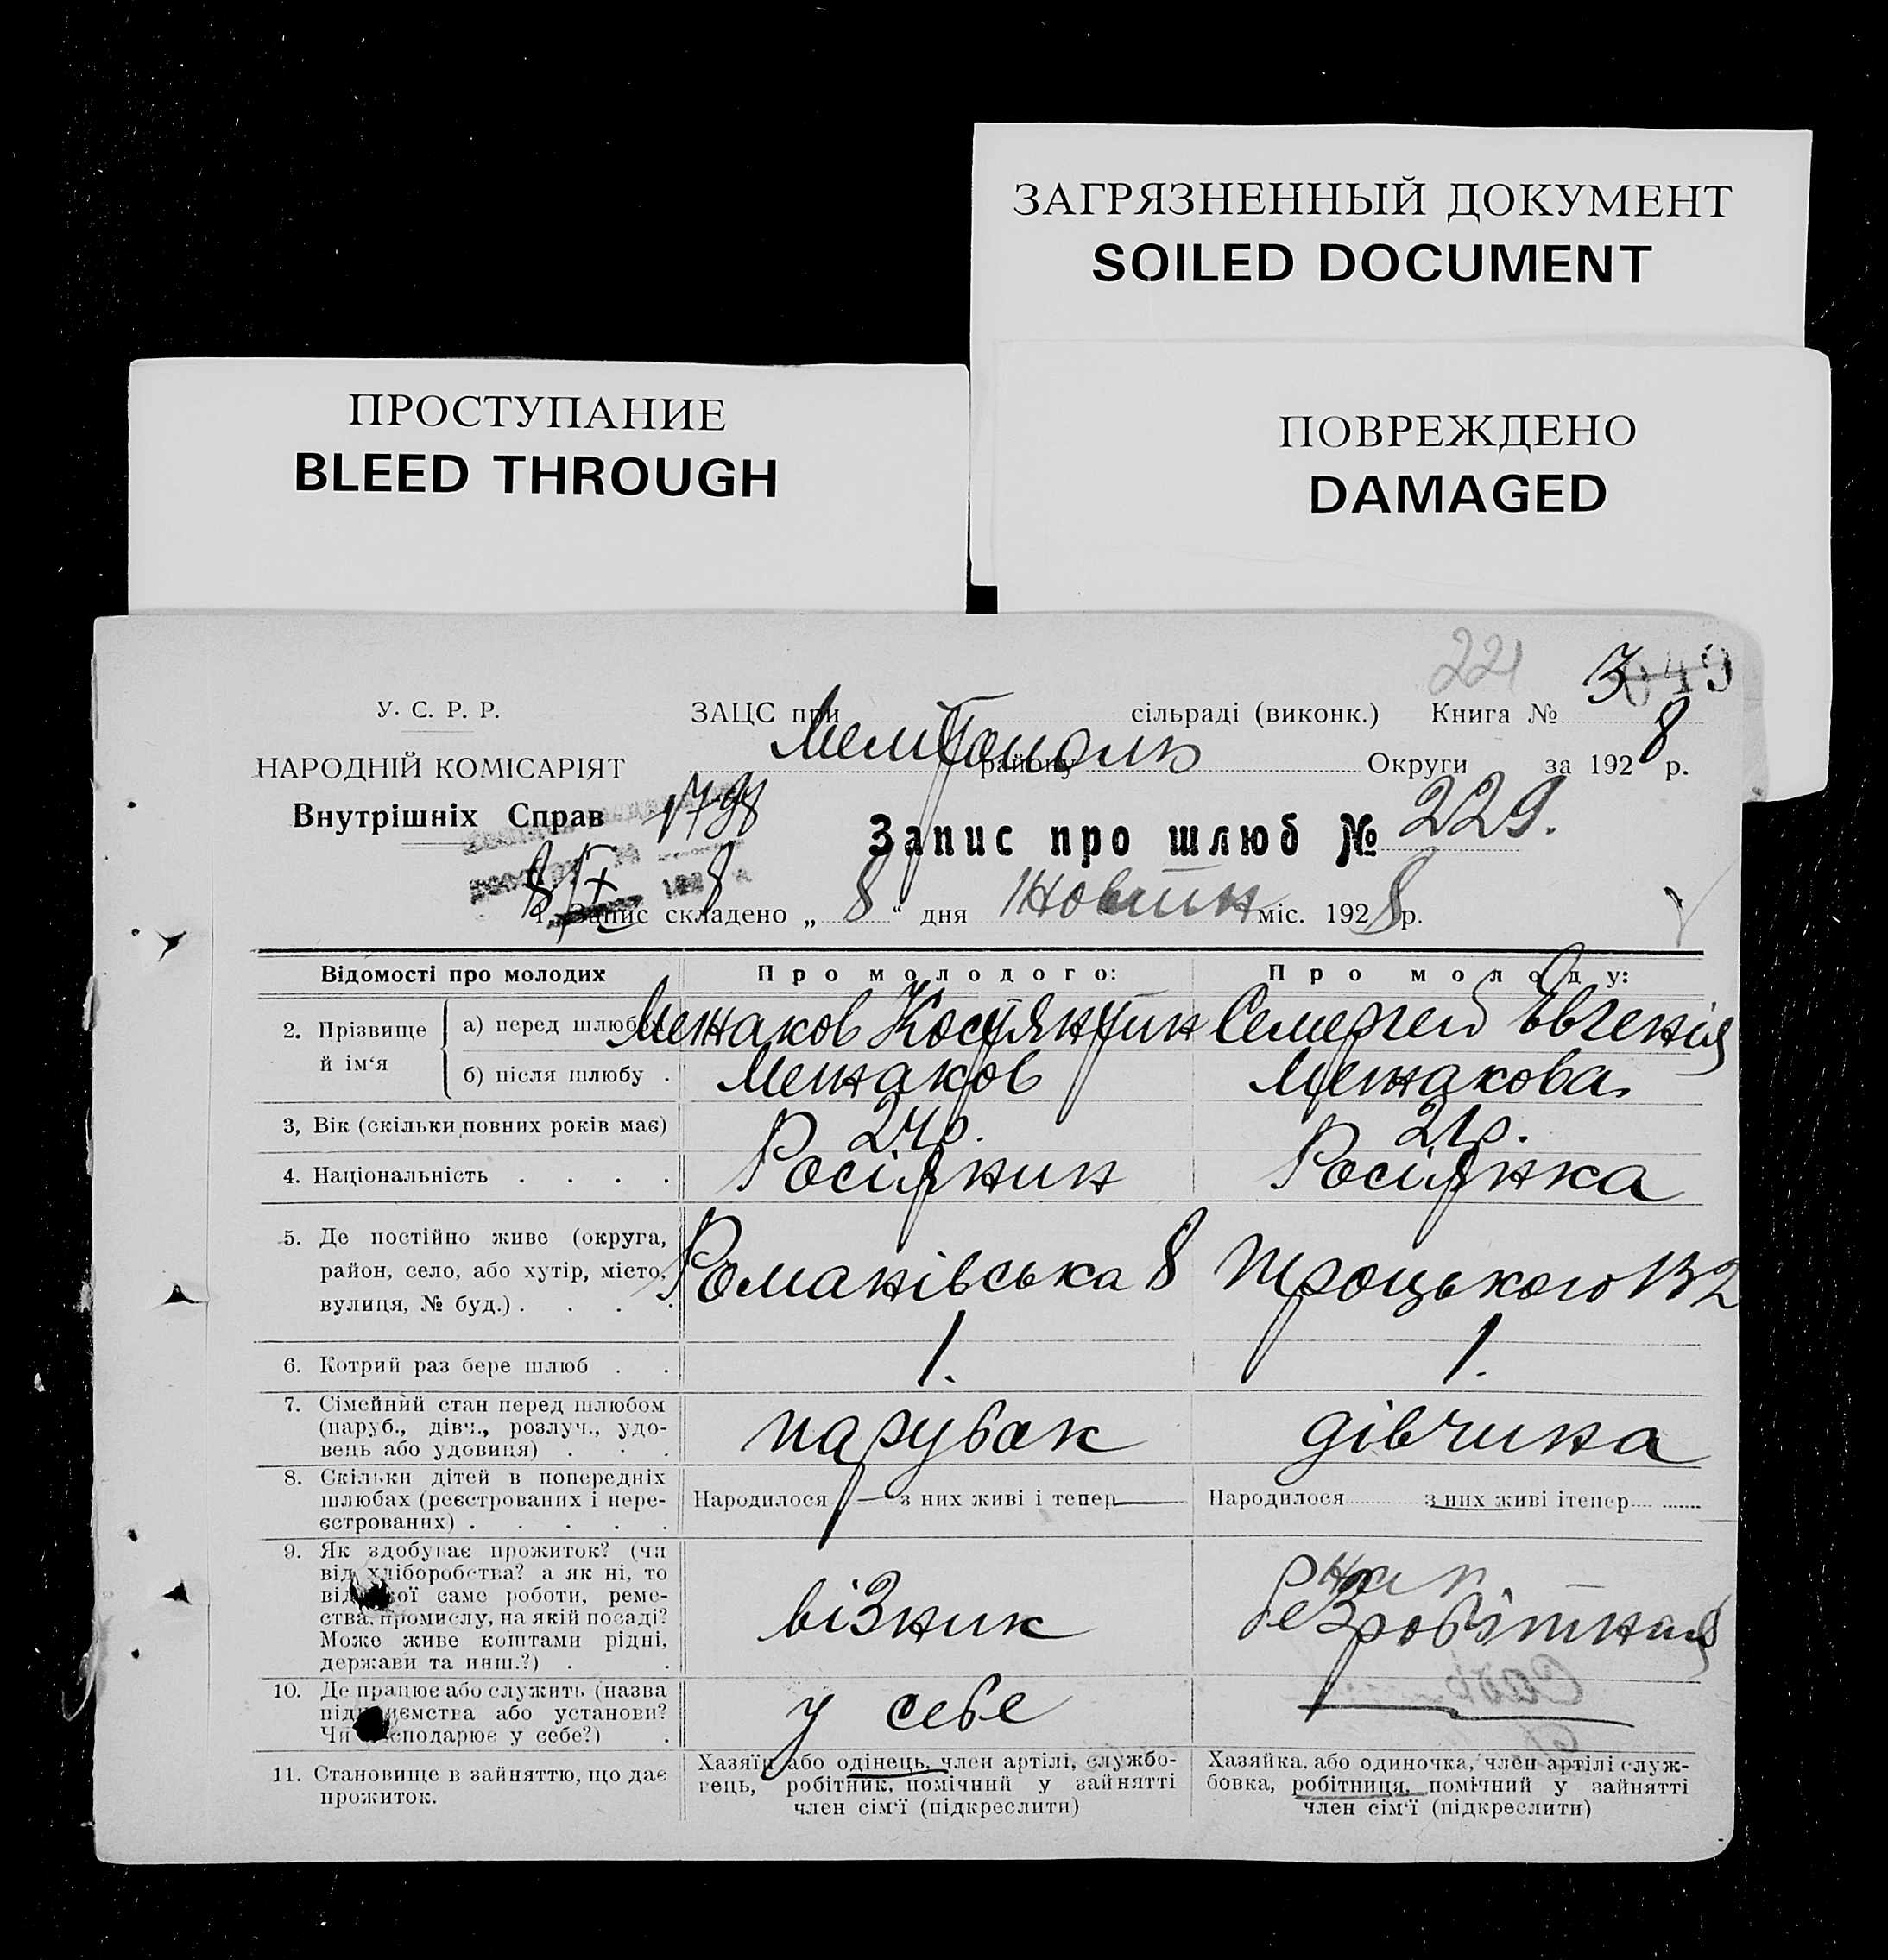 ЗАГРЯЗНЕННЫЙ ДОКУМЕНТ
SOILED DOCUMENT
ПРОСТУПАНИЕ
BLEED THROUGH
ПОВРЕЖДЕНО
DAMAGED
221
3 649
У. С. Р. Р.
НАРОДНІЙ КОМІСАРІЯТ
Внутрішніх Справ
ЗАЦС при сільраді (виконк.) Книга №
Мелітополь
району Округи за 1928 р.
1798
Запис про шлюб № 229.
8/IX 8
1. Запис складено „ 8 “ дня міс. 1928 р.
Відомості про молодих
Про молодого:
Про молоду:
2. Прізвище й ім‘я
а) перед шлюбом
Межаков Костянтин
Семергей Євгенія
б) після шлюбу .
Межаков
Межакова
3, Вік (скільки повних років має)
24р.
21р.
4. Національність . . . .
Росіянин
Росіянка
5. Де постійно живе (округа,
район, село, або хутір, місто,
вулиця, № буд.) . . . .
Романівська 8
Троцького 132
6. Котрий раз бере шлюб . .
1.
1.
7. Сімейний стан перед шлюбом
(паруб., дівч., розлуч., удо-
вець або удовиця) . . .
парубак
дівчина
8. Скільки дітей в попередніх
шлюбах (реєстрованих і нере-
єстрованих) . . . . .
Народилося — з них живі і тепер
Народилося з них живі ітепер
9. Як здобуває прожиток? (чи
від хліборобства? а як ні, то
від якої саме роботи, реме-
ства, промислу, на якій посаді?
Може живе коштами рідні,
держави та инш.?) . .
візник
безробітная
10. Де працює або служить (назва
підприємства або установи?
Чи господарює у себе?) .
у себе
11. Становище в зайняттю, що дає
прожиток.
Хазяїн або одінець, член артілі, службо-
вець, робітник, помічний у зайнятті
член сім‘ї (підкреслити)
Хазяйка, або одиночка, член артілі служ-
бовка, робітниця, помічний у зайнятті
член сім‘ї (підкреслити)